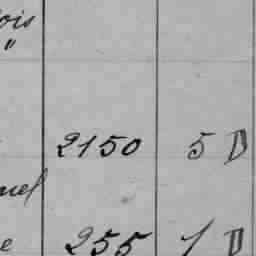 ois
"
2150 5 D
nel
e 255 1 D